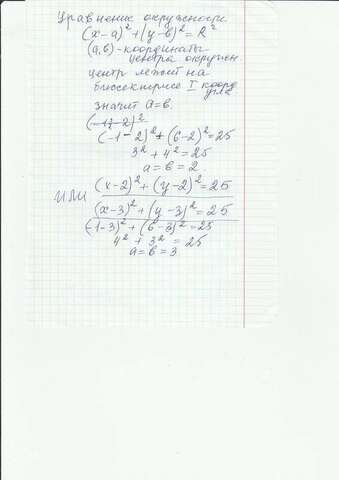 Уравнение окружности
(x-a)² + (y-в)² = R²
(a,в)-координаты
центра окружн.
центр лежит на
биссектрисе I коорд
угла
значит a=в.
(-1-2)² + (6-2)² = 25
3² + 4² = 25
a = в = 2
или (x-2)² + (y-2)² = 25
(x-3)² + (y-3)² = 25
(-1-3)² + (6-3)² = 25
4² + 3² = 25
a = в = 3